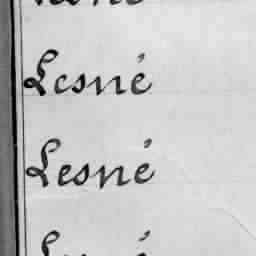 Lesné
Lesné